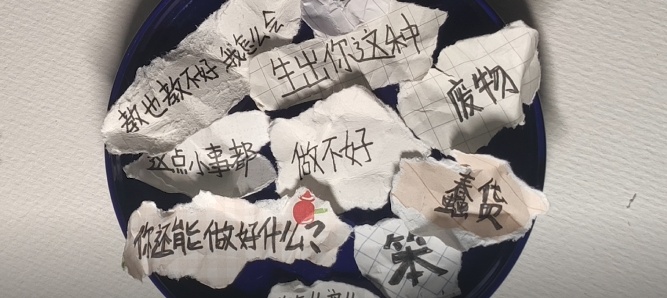 教也教不好
我怎么会
生出你这种
废物
这点小事都
做不好
蠢货
你还能做好什么？
笨